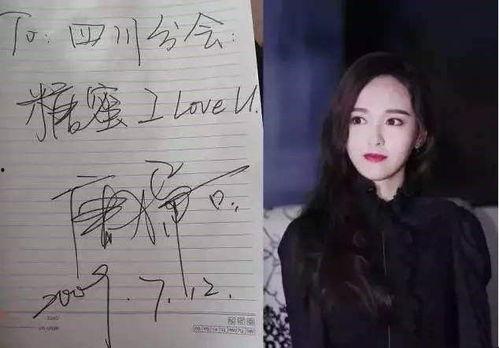 To: 四川分会:
糖蜜 I Love U.
2009.7.12.